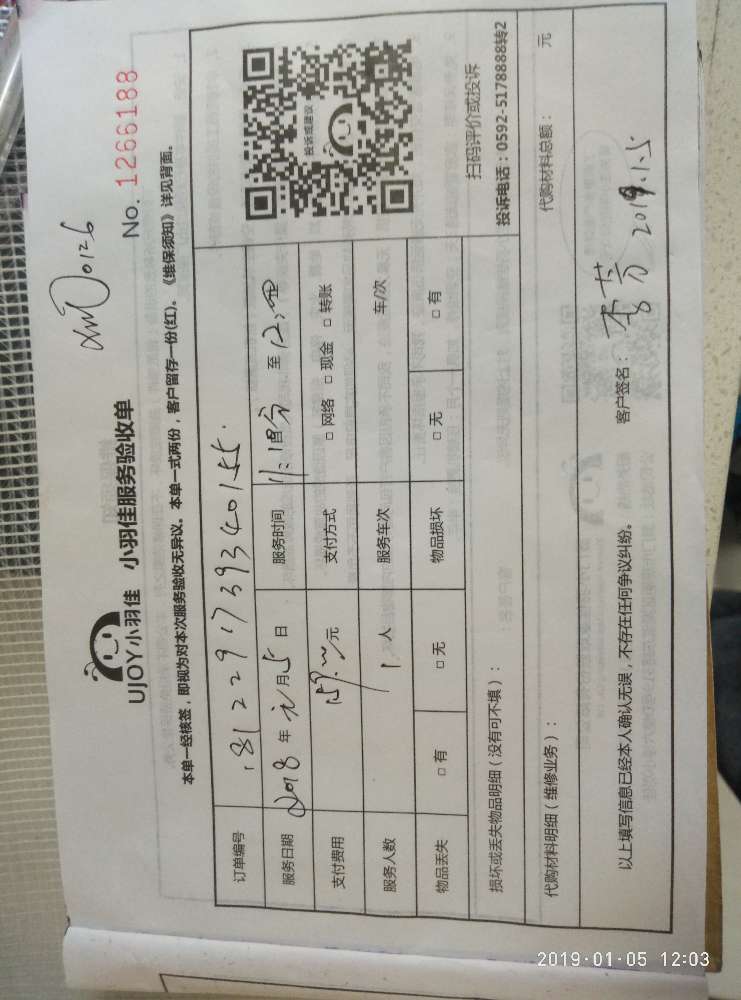 xm 0126
UJOY小羽佳 小羽佳服务验收单
No. 1266188
本单一经核签，即视为对本次服务验收无异议。本单一式两份，客户留存一份(红)。《维保须知》详见背面。
订单编号 1812291739340155.
服务日期 2018年元月5日 服务时间 11:18分 至 12:
支付费用 159.元 支付方式 □ 网络 □ 现金 □ 转账
服务人数 1 人 服务车次 车/次
物品丢失 □ 有 □ 无 物品损坏 □ 无 □ 有
投诉或建议
扫码评价或投诉
投诉电话：0592-5178888转2
损坏或丢失物品明细（没有可不填）：
代购材料明细（维修业务）： 代购材料总额： 元
以上填写信息已经本人确认无误，不存在任何争议纠纷。 客户签名： 2019.1.5
2019·01·05 12:03